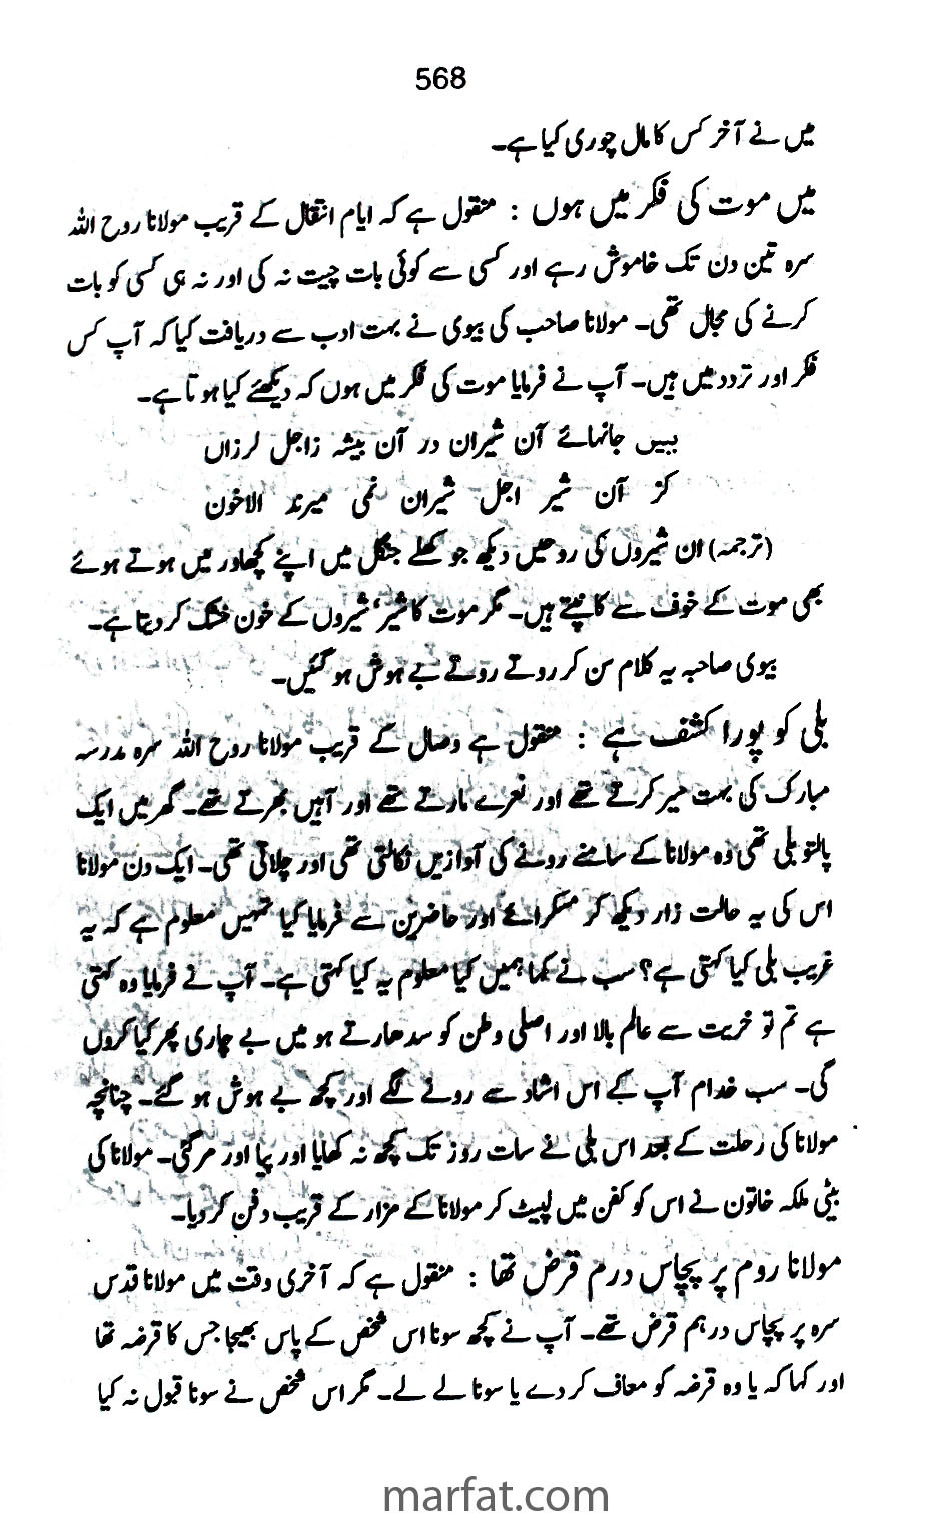 568
میں نے آخر کس کا مال چوری کیا ہے۔
میں موت کی فکر میں ہوں : منقول ہے کہ ایام انتقال کے قریب مولانا روح اللہ
سرہ تین دن تک خاموش رہے اور کسی سے کوئی بات چیت نہ کی اور نہ ہی کسی کو بات
کرنے کی مجال تھی۔ مولانا صاحب کی بیوی نے بہت ادب سے دریافت کیا کہ آپ کس
فکر اور تردد میں ہیں۔ آپ نے فرمایا موت کی فکر میں ہوں کہ دیکھئے کیا ہوتا ہے۔
ببیں جانہائے آن شیران در آن بیشہ زاجل لرزاں
کز آن شیر اجل شیران نمی میرند الاخون
(ترجمہ) ان شیروں کی روحیں دیکھ جو کھلے جنگل میں اپنے کچھاور میں ہوتے ہوئے
بھی موت کے خوف سے کانپتے ہیں۔ مگر موت کا شیر' شیروں کے خون خشک کر دیتا ہے۔
بیوی صاحبہ یہ کلام سن کر روتے روتے بے ہوش ہو گئیں۔
بلی کو پورا کشف ہے : منقول ہے وصال کے قریب مولانا روح اللہ سرہ مدرسہ
مبارک کی بہت سیر کرتے تھے اور نعرے مارتے تھے اور آہیں بھرتے تھے۔ گھر میں ایک
پالتو بلی تھی وہ مولانا کے سامنے رونے کی آوازیں نکالتی تھی اور چلاتی تھی۔ ایک دن مولانا
اس کی یہ حالت زار دیکھ کر مسکرائے اور حاضرین سے فرمایا کیا تمہیں معلوم ہے کہ یہ
غریب بلی کیا کہتی ہے؟ سب نے کہا ہمیں کیا معلوم یہ کیا کہتی ہے۔ آپ نے فرمایا وہ کہتی
ہے تم تو خریت سے عالم بالا اور اصلی وطن کو سدھارتے ہو میں بے چاری پھر کیا کروں
گی۔ سب خدام آپ کے اس اشاد سے رونے لگے اور کچھ بے ہوش ہو گئے۔ چنانچہ
مولانا کی رحلت کے بعد اس بلی نے سات روز تک کچھ نہ کھایا اور پیا اور مر گئی۔ مولانا کی
بیٹی ملکہ خاتون نے اس کو کفن میں لپیٹ کر مولانا کے مزار کے قریب دفن کر دیا۔
مولانا روم پر پچاس درم قرض تھا : منقول ہے کہ آخری وقت میں مولانا قدس
سرہ پر پچاس درہم قرض تھے۔ آپ نے کچھ سونا اس شخص کے پاس بھیجا جس کا قرضہ تھا
اور کہا کہ یا وہ قرضہ کو معاف کر دے یا سونا لے لے۔ مگر اس شخص نے سونا قبول نہ کیا
marfat.com